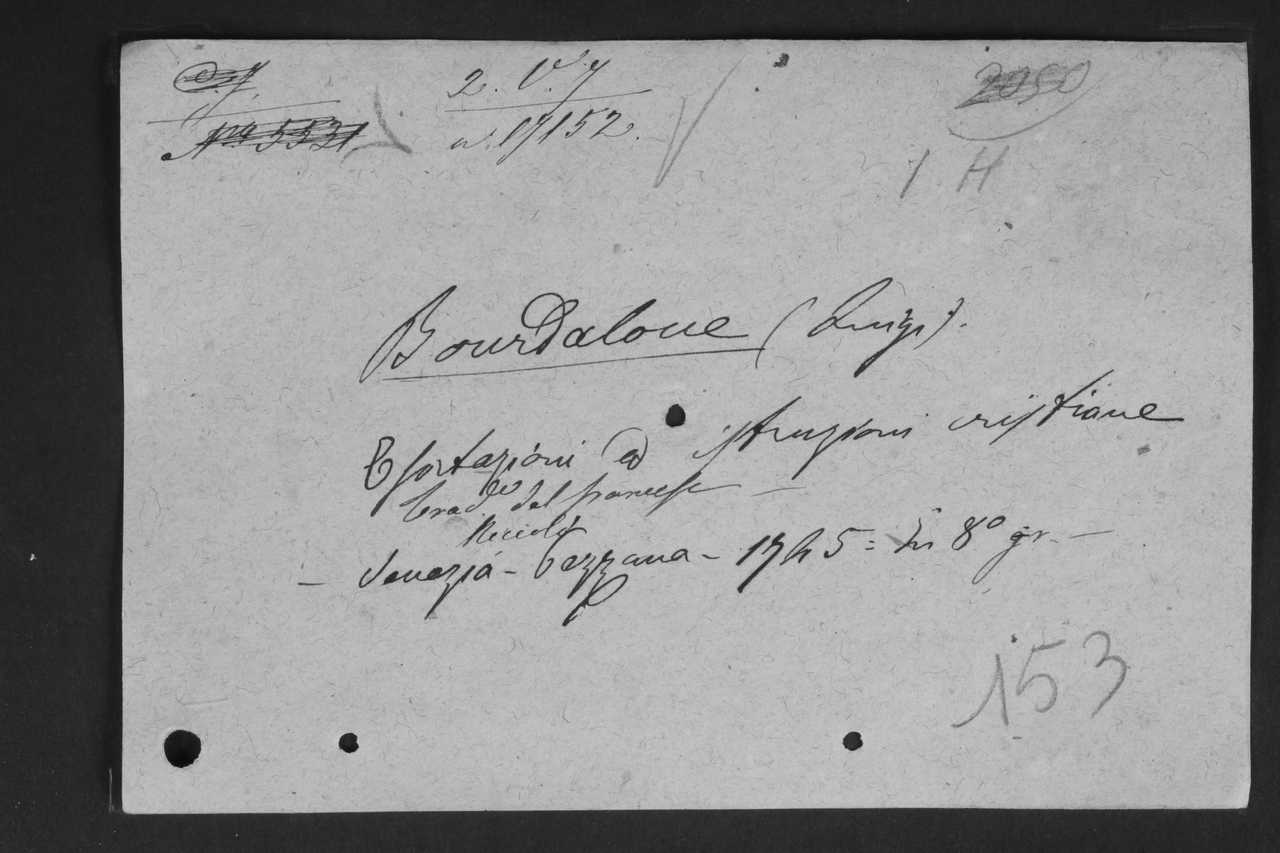 2. V. 7
n. 17152.
2050
1 H
Bourdaloue (Luigi).
Esortazioni ed istruzioni cristiane
Trad. dal francese —
— Venezia - Pezzana - 1745 = in 8º gr. —
153